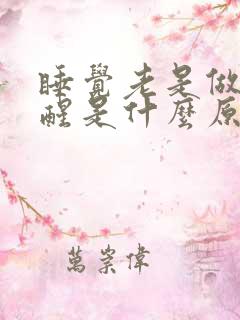 睡覺老是做
醒是什麼原
萬崇偉